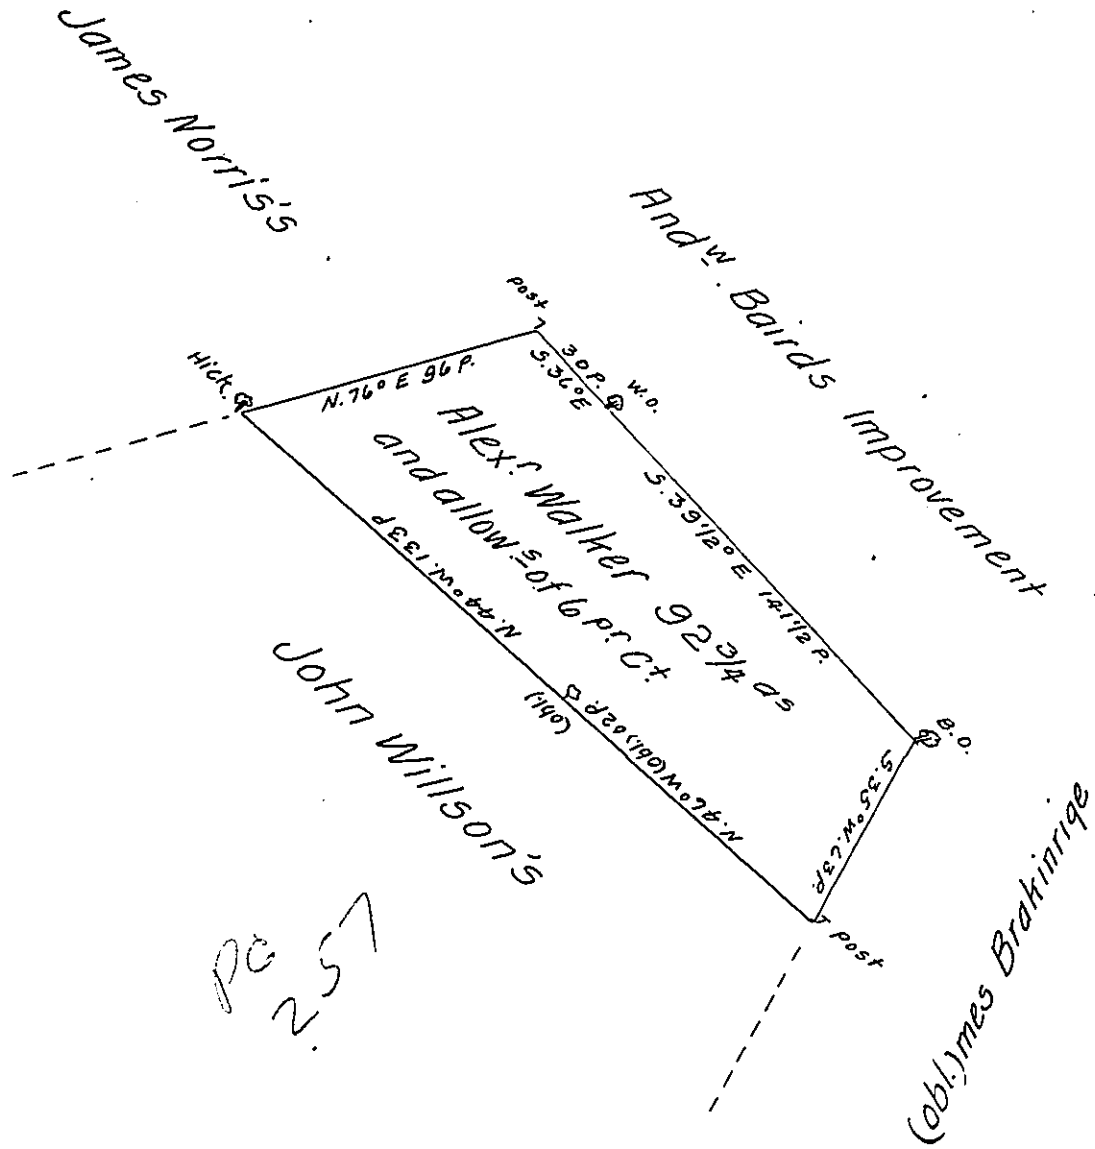 James Norris's
Andᵂ. Bairds Improvement
post
Hick.
N. 76° E 96 P.
30 P.
S. 36° E
W.O.
S. 39 1/2° E 141 1/2 P.
Alexʳ. Walker 92 3/4 as
and allowˢ. of 6 pr. Ct
N. 44° W. 133 P
(obl.)
N. 46° W (obl.) 02 P.
B.O.
S. 35° W. 63 P.
post
John Willson's
(obl.)mes Brakinrige
pg
257